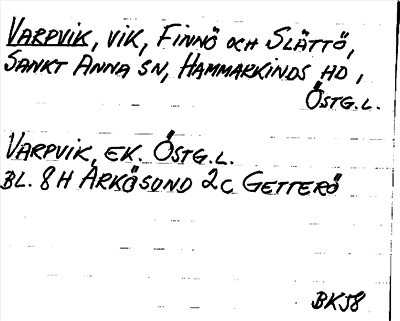 VARPVIK, VIK, FINNÖ OCH SLÄTTÖ,
SANKT ANNA SN, HAMMARKINDS HD,
ÖSTG.L.
VARPVIK, EK. ÖSTG.L.
BL. 8H ARKÖSUND 2C GETTERÖ
BKJ8